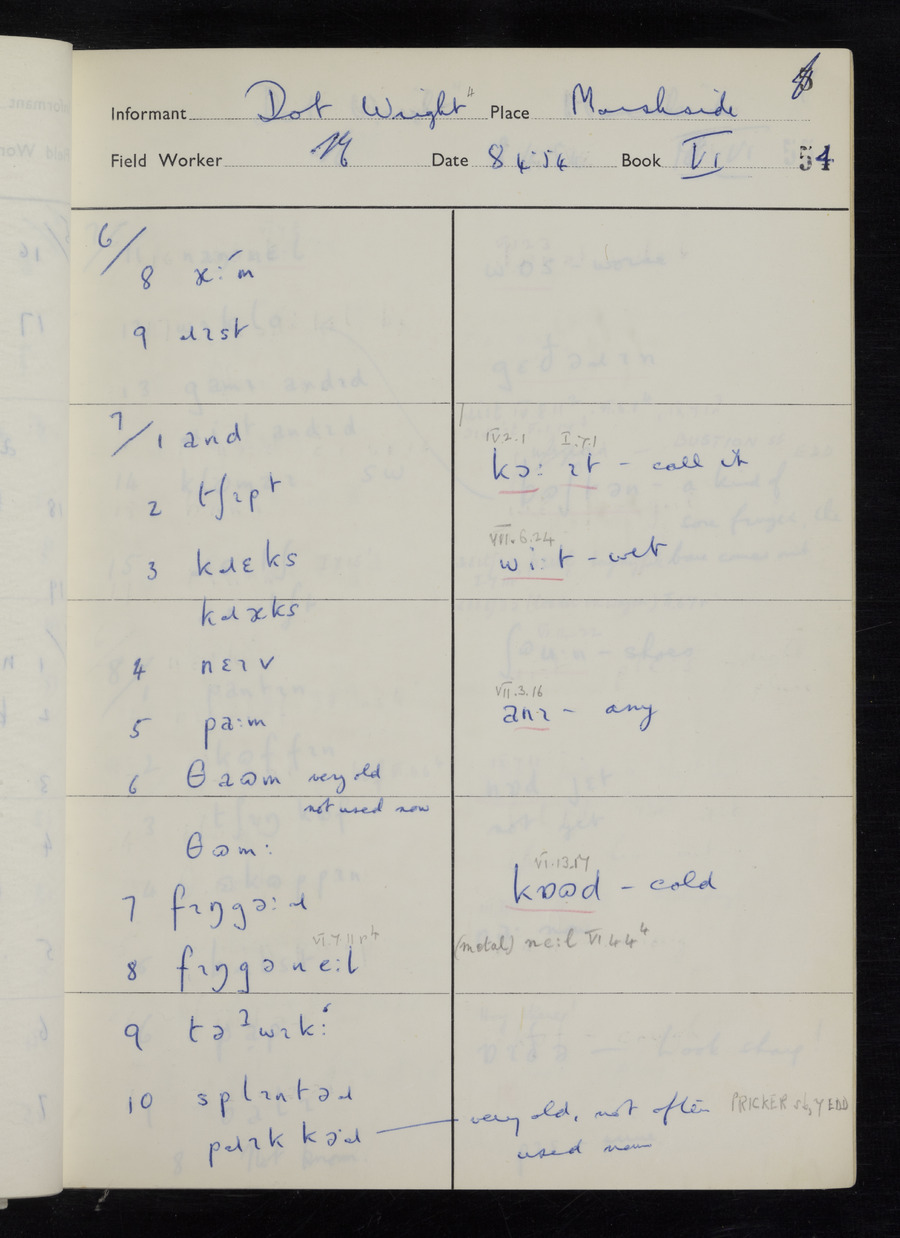 Informant Dot Wright Place Marshside
Field Worker Date 8.4.54 Book VI 54
6/8
9 ɹɪst
7/1 and
2 tʃɪpt
3 kɹɛks
kɹæks
4 nɛɪv
5 pa:m
6 θaʊm very old
not used now
θʊm:
7 fɪŋgə:ɹ
8 fɪŋgəne:l
9 tə ʔwɪk:
10 splɪntəɹ
pɹɪkkəɹ
IV.2.1 I.7.1
kɔ: ɪt - call it
VII.6.24
wi:t - wet
VII.3.16
anɪ - any
VI.13.17
kɒʊd - cold
(metal) ne:l VI 4 4
very old, not often
used now
PRICKER EDD